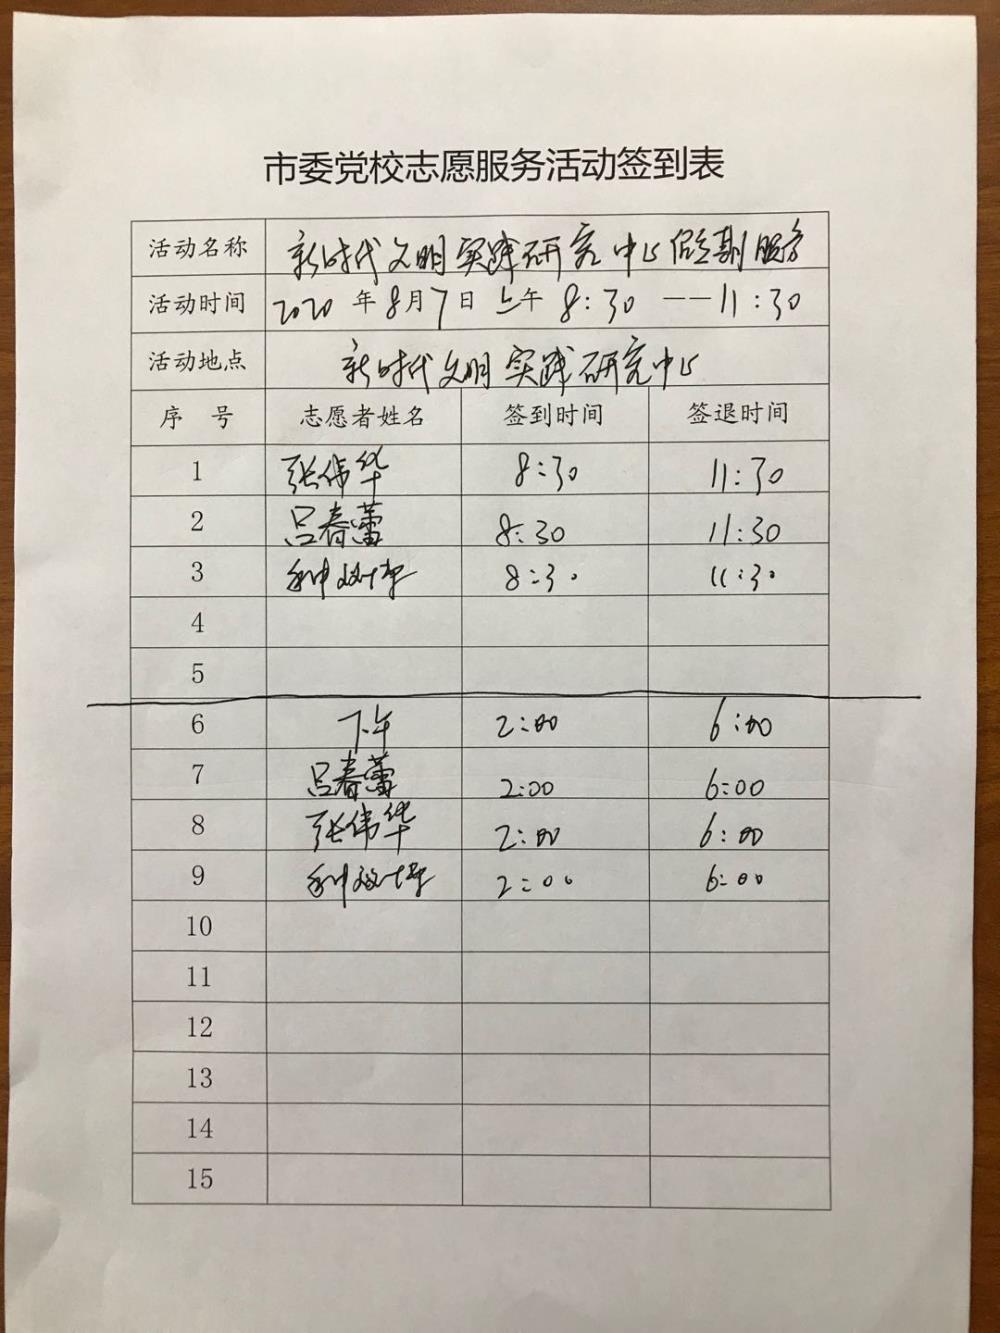 市委党校志愿服务活动签到表
活动名称 新时代文明实践研究中心假期服务
活动时间 2020年8月7日 上午 8:30 ——11:30
活动地点 新时代文明实践研究中心
序 号 志愿者姓名 签到时间 签退时间
1 张伟华 8:30 11:30
2 吕春蕾 8:30 11:30
3 8:30 11:30
4
5
6 下午 2:00 6:00
7 吕春蕾 2:00 6:00
8 张伟华 2:00 6:00
9 2:00 6:00
10
11
12
13
14
15